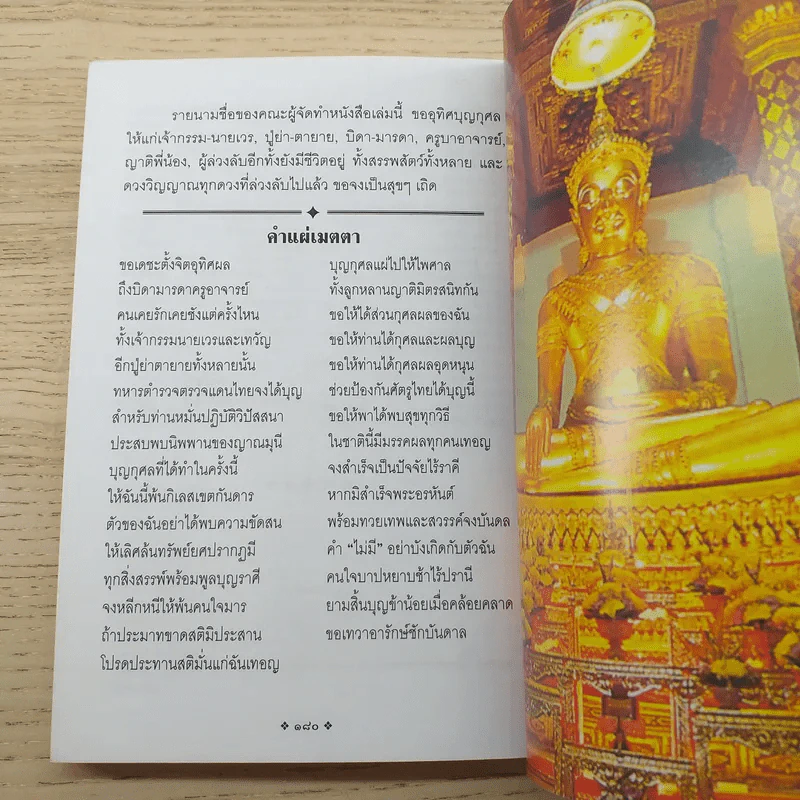 รายนามชื่อของคณะผู้จัดทำหนังสือเล่มนี้ ขออุทิศบุญกุศล
ให้แก่เจ้ากรรม-นายเวร, ปู่ย่า-ตายาย, บิดา-มารดา, ครูบาอาจารย์,
ญาติพี่น้อง, ผู้ล่วงลับอีกทั้งยังมีชีวิตอยู่ ทั้งสรรพสัตว์ทั้งหลาย และ
ดวงวิญญาณทุกดวงที่ล่วงลับไปแล้ว ขอจงเป็นสุขๆ เถิด
คำแผ่เมตตา
ขอเดชะตั้งจิตอุทิศผล บุญกุศลแผ่ไปให้ไพศาล
ถึงบิดามารดาครูอาจารย์ ทั้งลูกหลานญาติมิตรสนิทกัน
คนเคยรักเคยชังแต่ครั้งไหน ขอให้ได้ส่วนกุศลผลของฉัน
ทั้งเจ้ากรรมนายเวรและเทวัญ ขอให้ท่านได้กุศลและผลบุญ
อีกปู่ย่าตายายทั้งหลายนั้น ขอให้ท่านได้กุศลผลอุดหนุน
ทหารตำรวจตรวจแดนไทยจงได้บุญ ช่วยป้องกันศัตรูไทยได้บุญนี้
สำหรับท่านหมั่นปฏิบัติวิปัสสนา ขอให้พาได้พบสุขทุกวิธี
ประสบพบนิพพานของญาณมุนี ในชาตินี้มีมรรคผลทุกคนเทอญ
บุญกุศลที่ได้ทำในครั้งนี้ จงสำเร็จเป็นปัจจัยไร้ราคี
ให้ฉันนี้พ้นกิเลสเขตกันดาร หากมิสำเร็จพระอรหันต์
ตัวของฉันอย่าได้พบความขัดสน พร้อมทวยเทพและสวรรค์จงบันดล
ให้เลิศล้นทรัพย์ยศปรากฏมี คำ “ไม่มี” อย่าบังเกิดกับตัวฉัน
ทุกสิ่งสรรพ์พร้อมพูลบุญราศี คนใจบาปหยาบช้าไร้ปรานี
จงหลีกหนีให้พ้นคนใจมาร ยามสิ้นบุญข้าน้อยเมื่อคล้อยคลาด
ถ้าประมาทขาดสติมิประสาน ขอเทวาอารักษ์ชักบันดาล
โปรดประทานสติมั่นแก่ฉันเทอญ
❖ ๑๘๐ ❖